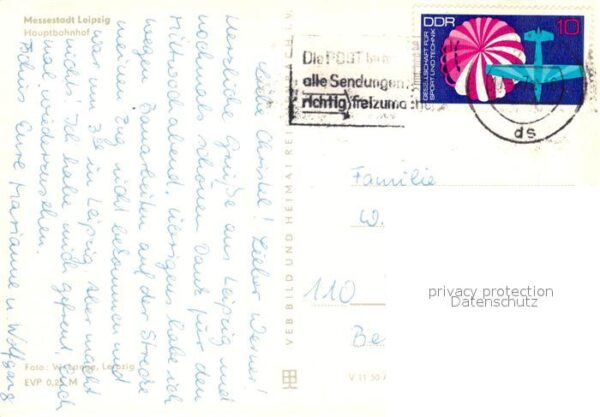 Messestadt Leipzig
Hauptbahnhof
Christel! Lieber Werner!
Herzliche Grüße aus Leipzig und
nochmals schönen Dank für den
Mittwochabend. Übrigens habe ich
weg. Bauarbeiten auf der Strecke
meinen Zug nicht bekommen und
war 3⁰⁰ in Leipzig. Aber macht
nichts. Ich habe mich gefreut Euch
mal wiederzusehen.
Tschüs Eure Marianne u Wolfgang
Foto: Leipzig
EVP 0,25 M
VEB BILD UND HEIMAT REI
V 11 50 A
Die POST
alle Sendungen
richtig freizumachen
DDR
10
GESELLSCHAFT FÜR
SPORT UND TECHNIK
ds
Familie
W.
110
Be
privacy protection
Datenschutz